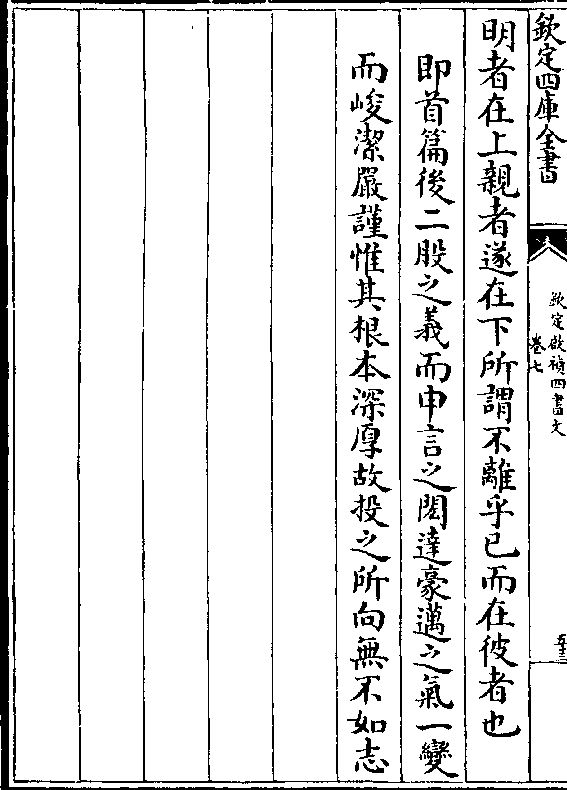 欽定四庫全書
欽定啟禎四書文
卷七
五十三
明者在上親者遂在下所謂不離乎已而在彼者也
即首篇後二股之義而申言之闊達豪邁之氣一變
而峻潔嚴謹惟其根本深厚故投之所向無不如志